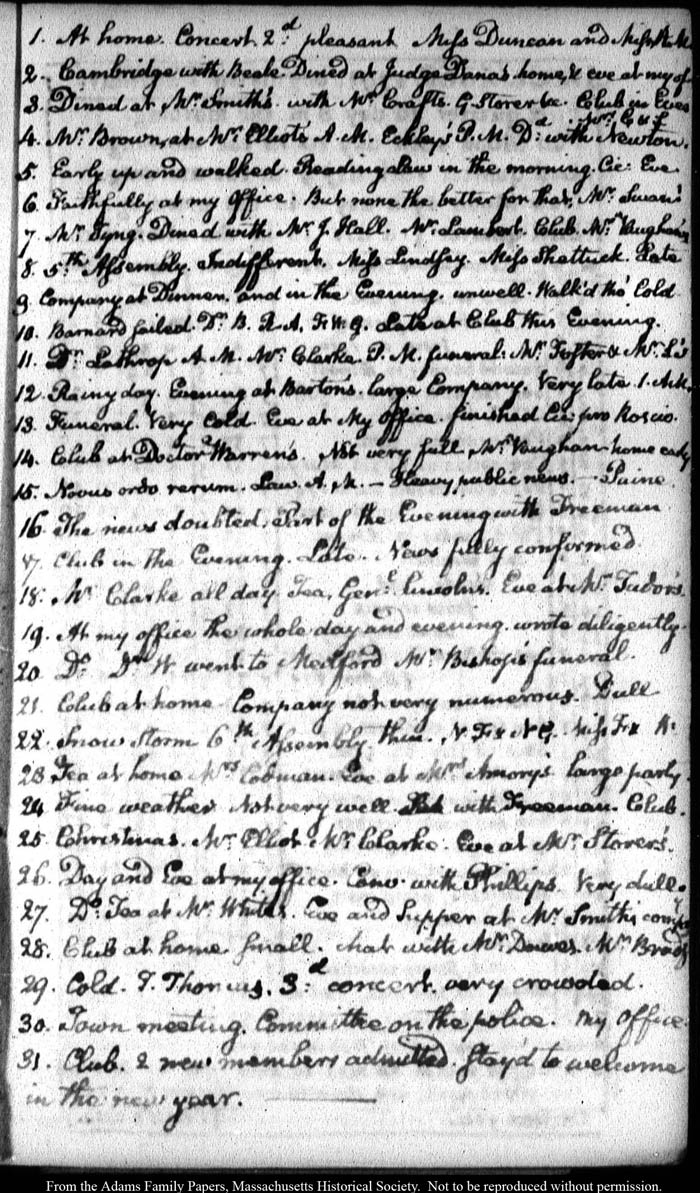 1. At home. Concert 2.d pleasant Miss Duncan and Miss
2. Cambridge with Beale. Dined at Judge Dana's home, & eve at my of
3. Dined at Mr. Smith's. with Mr. Crafts. G Storer &c. Club in Eve
4. Mr. Brown, at Mr. Elliot's A. M. Eckley's P. M. D:d with Newton.
5. Early up and walked. Reading Law in the morning. Cic: Eve
6. Faithfully at my Office. But none the better for that, Mr. Swan's
7. Mr. Tyng. Dined with Mr. J. Hall. Mr. Lambert. Club. Mr. Vaughan's
8. 5th Assembly. Indifferent. Miss Lindsay. Miss Shattuck. Late
9. Company at Dinner. and in the Evening. unwell. Walk'd tho' Cold
10. Barnard failed. Dr. B. R. A. F. W. G. Late at Club this Evening.
11. Dr. Lathrop A. M. Mr. Clarke P. M. funeral: Mr. Foster & Mr. L's
12. Rainy day. Evening at Barton's. large Company. Very late.
13. Funeral. Very Cold. Eve at My Office. finished Cic: pro Roscio.
14. Club at Doctor Warren's. Not very full. Mr. Vaughan. home early
15. Novus ordo rerum. Law. A. M. — Heavy public news. — Paine.
16. The news doubted. Part of the Evening with Freeman
17. Club in the Evening. Late. News fully conformed
18. Mr. Clarke all day Tea, Genl: Lincoln's. Eve at Mr. Tudor's
19. At my office the whole day and evening. wrote diligently.
20. Do. Dr. W went to Medford Mr. Bishop's funeral.
21. Club at home Company not very numerous. Dull
22. Snow storm 6th Assembly thin. N. F &
23. Tea at home Mrs. Eve at Mrs. Amory's large party
24. Fine weather Not very well. with Freeman. Club.
25. Christmas. Mr. Elliot Mr. Clarke. Eve at Mr. Storer's.
26. Day and Eve at my office. Conv: with Phillips. Very dull.
27. Do. Tea at Mr. White's. Eve and Supper at Mr. Smith's
28. Club at home small. chat with Mr. Dawes. Mr.
29. Cold. I. Thomas. 3:d concert. very crowded.
30. Town meeting. Committee on the police. My Office.
31. Club. 2 new members admitted. Stay'd to welcome
in the new year.
From the Adams Family Papers, Massachusetts Historical Society. Not to be reproduced without permission.